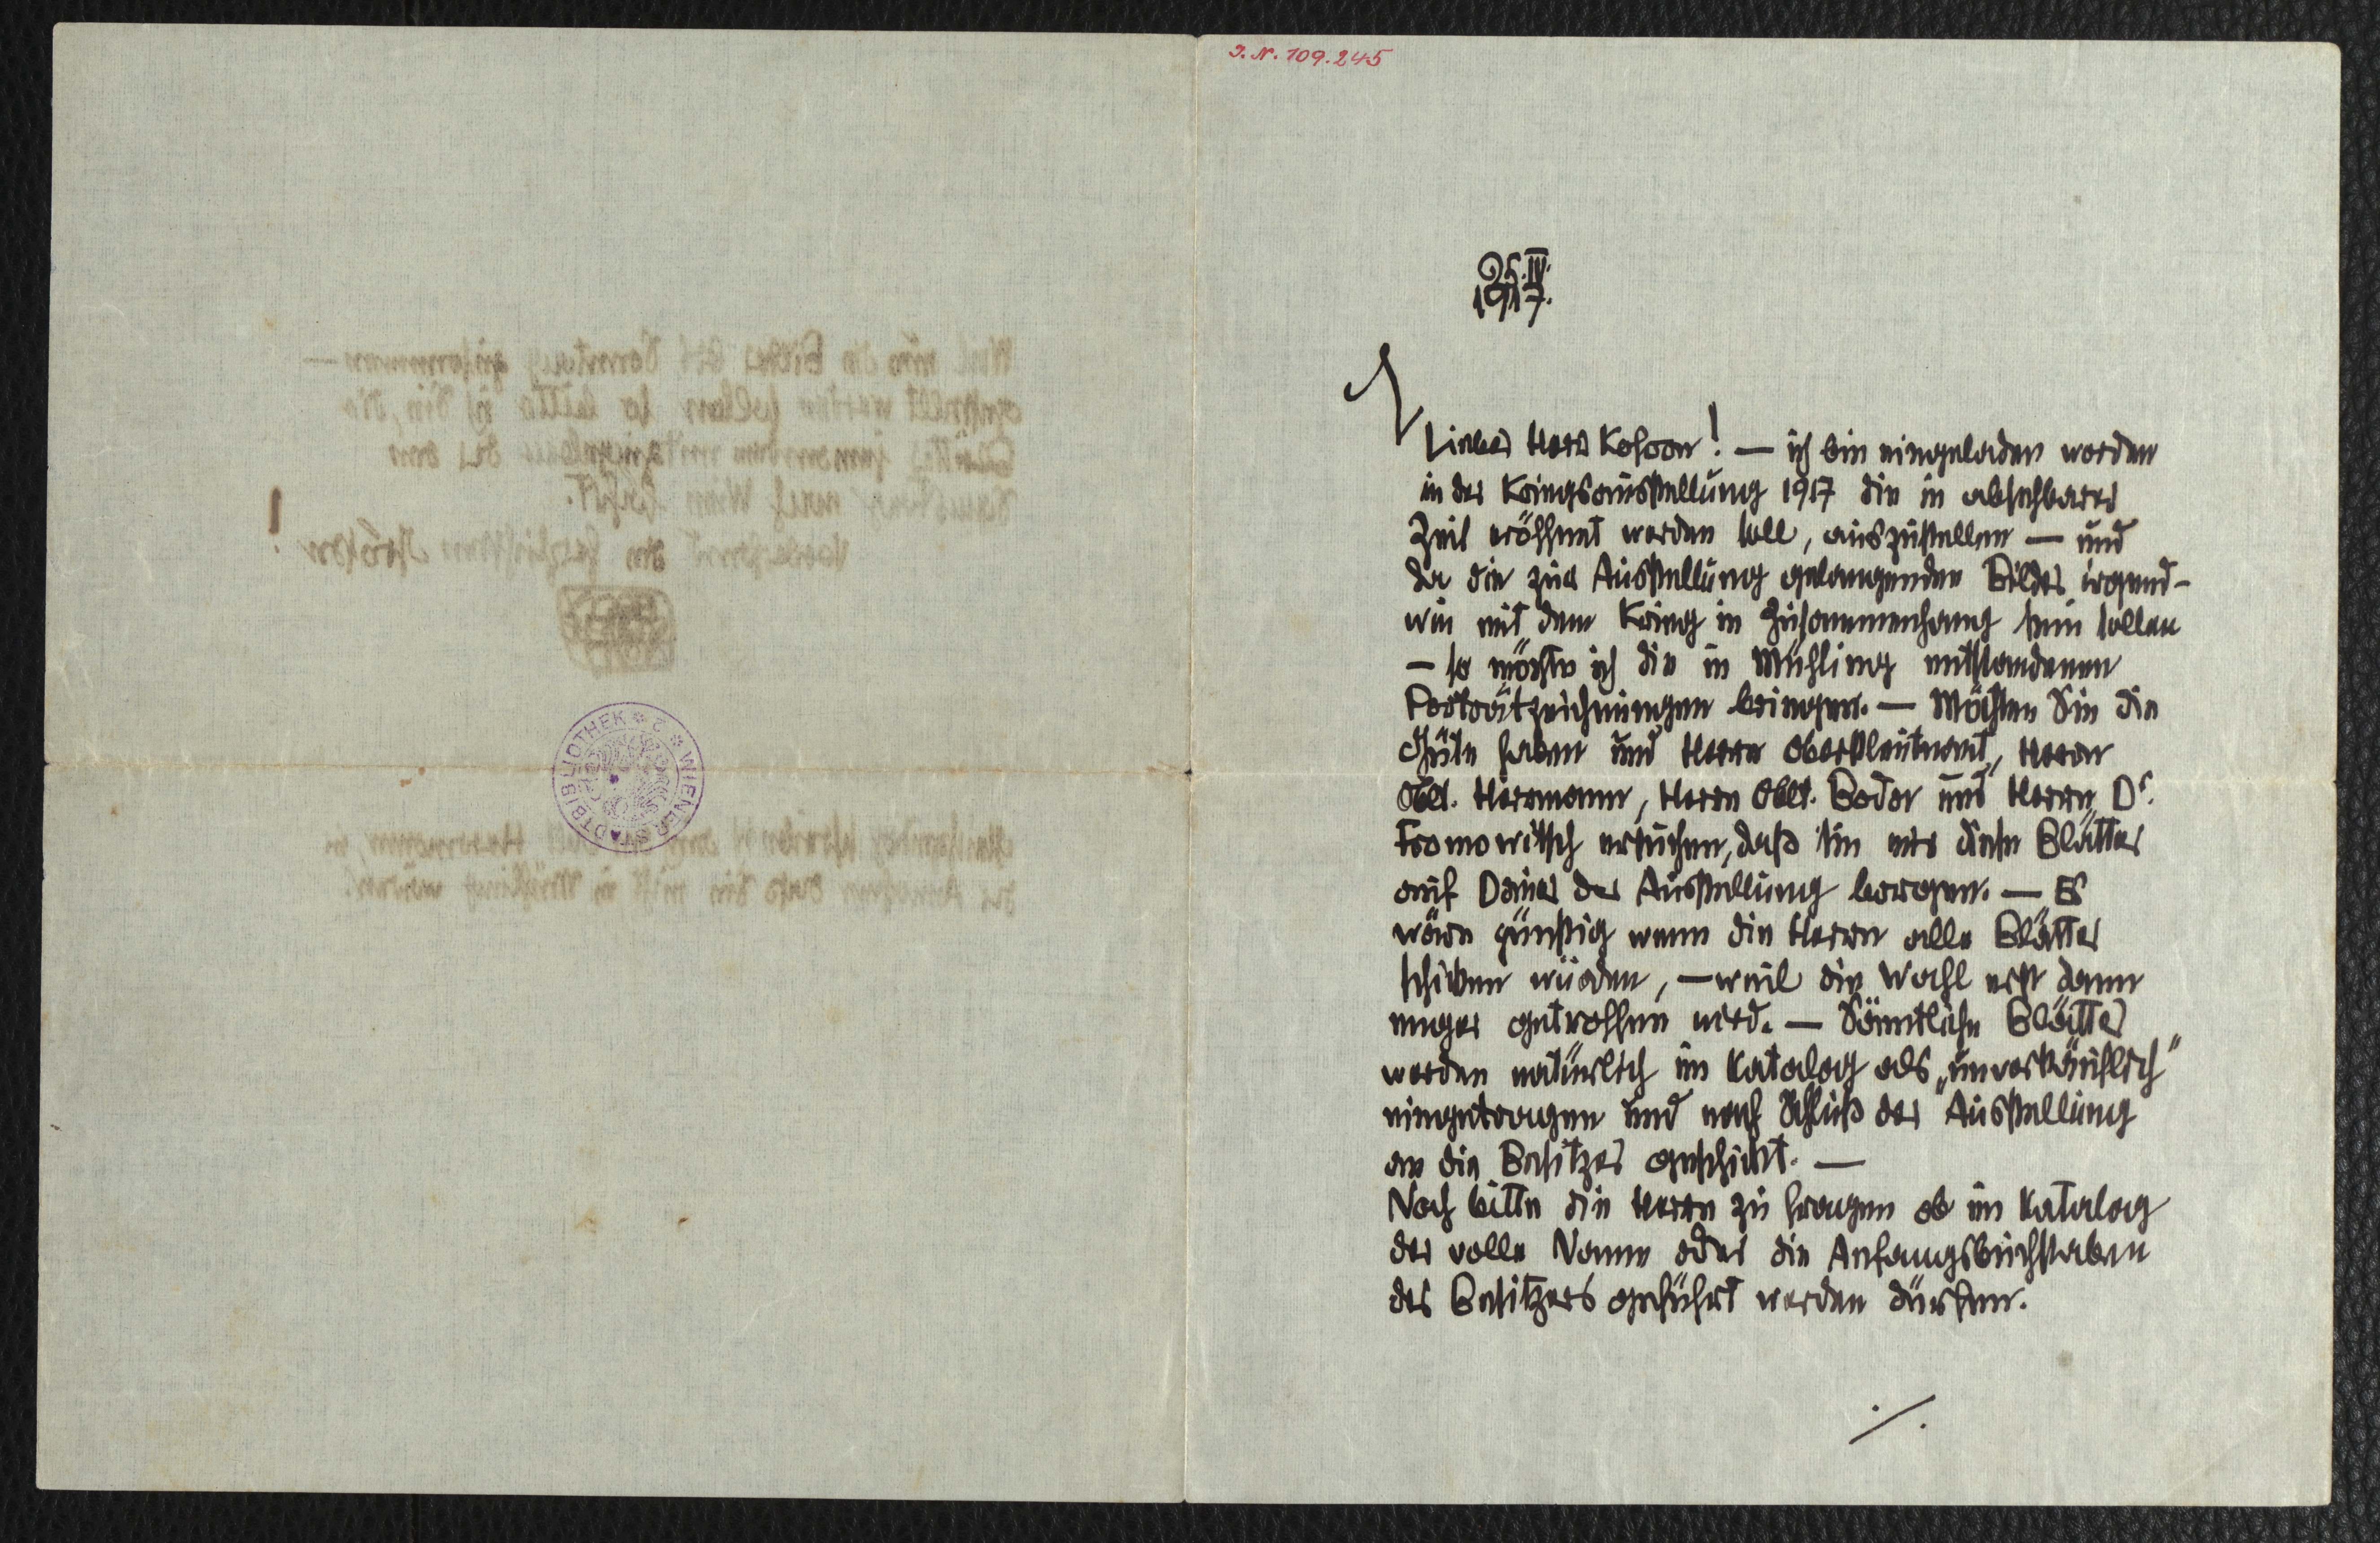 J. N. 109.245
25.IV.
1917.
Lieber Herr Kosoon! — ich bin eingeladen worden
in der Kriegsausstellung 1917 die in absehbarer
Zeit eröffnet werden soll, auszustellen — und
da die zur Ausstellung gelangenden Bilder irgend-
wie mit dem Krieg in Zusammenhang sein sollen
— so möchte ich die in Mühling entstandenen
Porträtzeichnungen bringen. — Möchten Sie die
Güte haben und Herrn Oberstleutnant, Herrn
Oblt. Herrmann, Herrn Oblt. Boder und Herrn Dr.
Fromowitsch ersuchen, daß sie mir diese Blätter
auf Dauer der Ausstellung borgen. — Es
wäre günstig wenn die Herrn alle Blätter
schicken würden, — weil die Wahl erst dann
enger getroffen wird. — Sämtliche Blätter
werden natürlich im Katalog als „unverkäuflich"
eingetragen und nach Schluß der Ausstellung
an die Besitzer geschickt. —
Noch bitte die Herrn zu fragen ob im Katalog
der volle Name oder die Anfangsbuchstaben
des Besitzers geführt werden dürfen.
./.
WIENER STADTBIBLIOTHEK